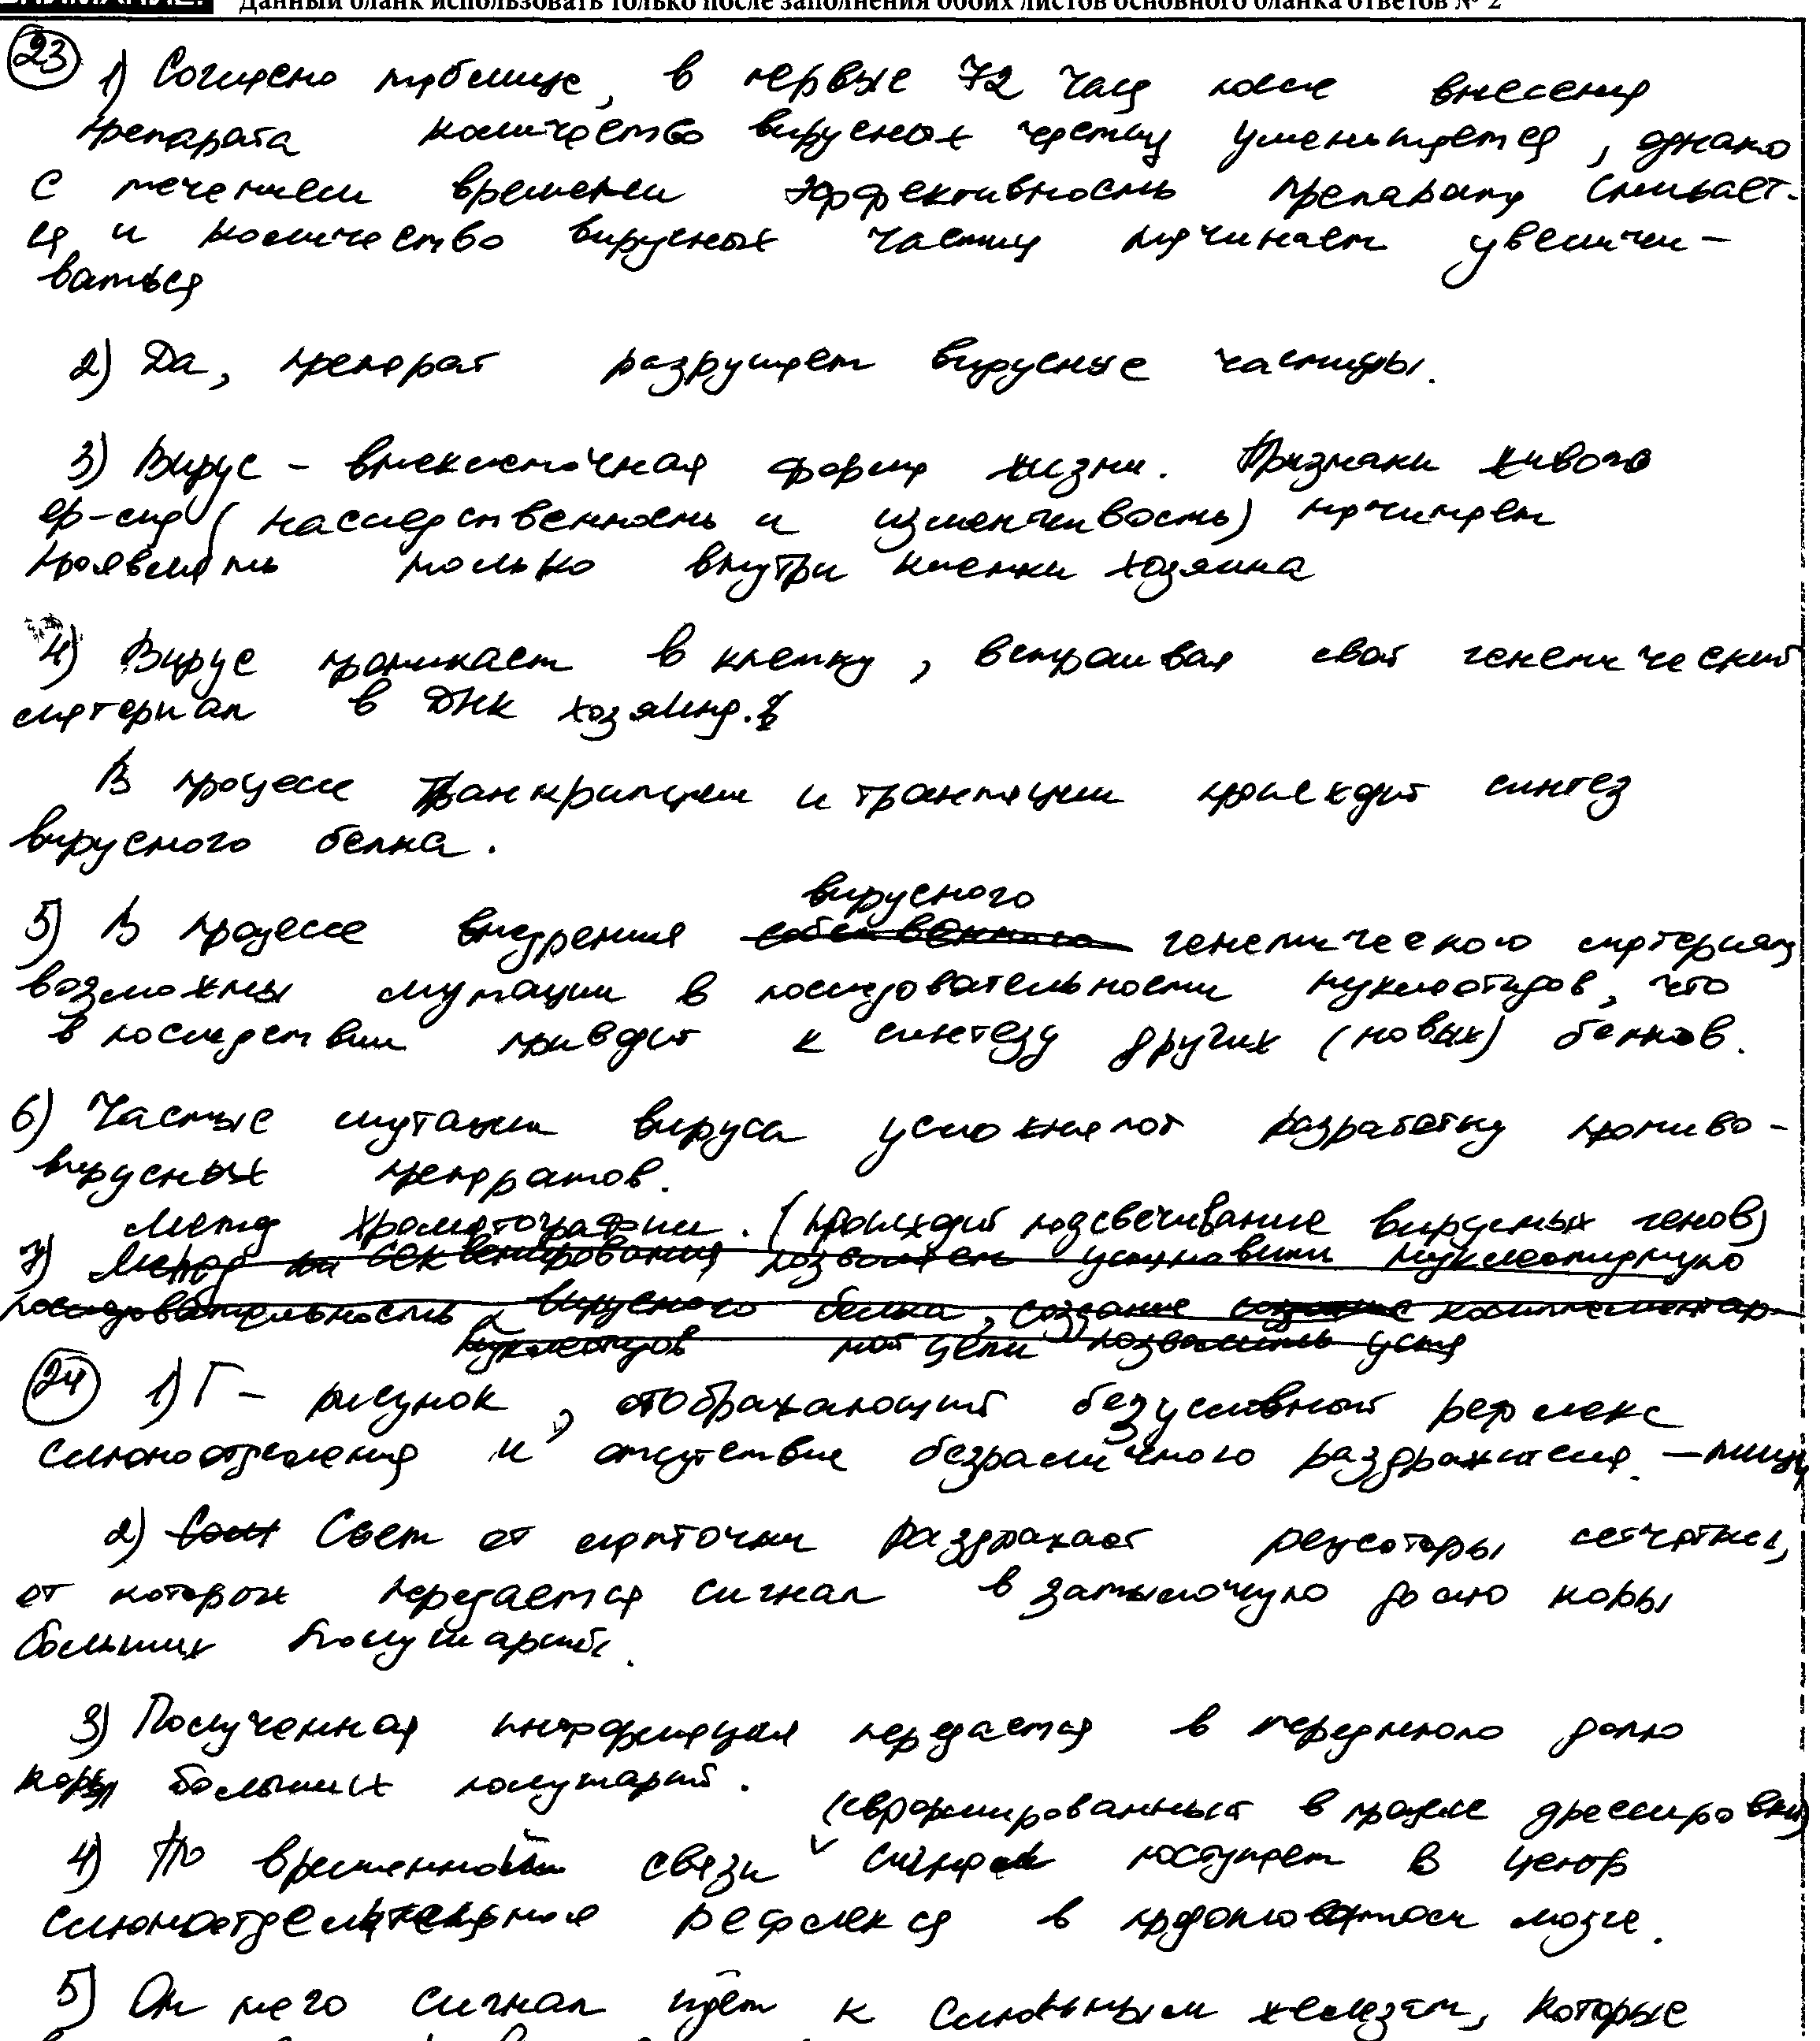 Данный бланк использовать только после заполнения обоих листов основного бланка ответов № 2
23 1) Согласно таблице, в первые 72 часа после внесения
препарата количество вирусных частиц уменьшается, однако
с течением времени эффективность препарата снижает-
ся и количество вирусных частиц начинает увеличи-
ваться
2) Да, препарат разрушает вирусные частицы.
3) Вирус – внеклеточная форма жизни. Признаки живого
ор-зма (наследственность и изменчивость) начинает
проявлять только внутри клетки хозяина
4) Вирус проникает в клетку, встраивая свой генетический
материал в ДНК хозяина.
В процессе транкрипции и трансляции происходит синтез
вирусного белка.
вирусного
5) В процессе внедрения собственного генетического материала
возможны мутации в последовательности нуклеотидов, что
в последствии приводит к синтезу других (новых) белков.
6) Частые мутации вируса усложняют разработку противо-
вирусных препаратов.
Метод хроматографии. (происходит подсвечивание вирусных генов)
7) Метод секвенирования позволяет установить нуклеотидную
последовательность вирусного белка, создание комплементар-
нуклеотидов ной цепи позволить уста
24 1) Г – рисунок, отображающий безусловный рефлекс
слюноотделения и отсутствие безразличного раздражителя – пищу
2) Свет от лампочки раздражает рецепторы сетчатки,
от которых передается сигнал в затылочную долю коры
больших полушарий.
3) Полученная информация передается в переднюю долю
коры больших полушарий.
(сформированный в процессе дрессировки)
4) По временной связи сигнал поступает в центр
слюноотделительного рефлекса в продолговатом мозге.
5) От него сигнал идёт к слюнным железам, которые